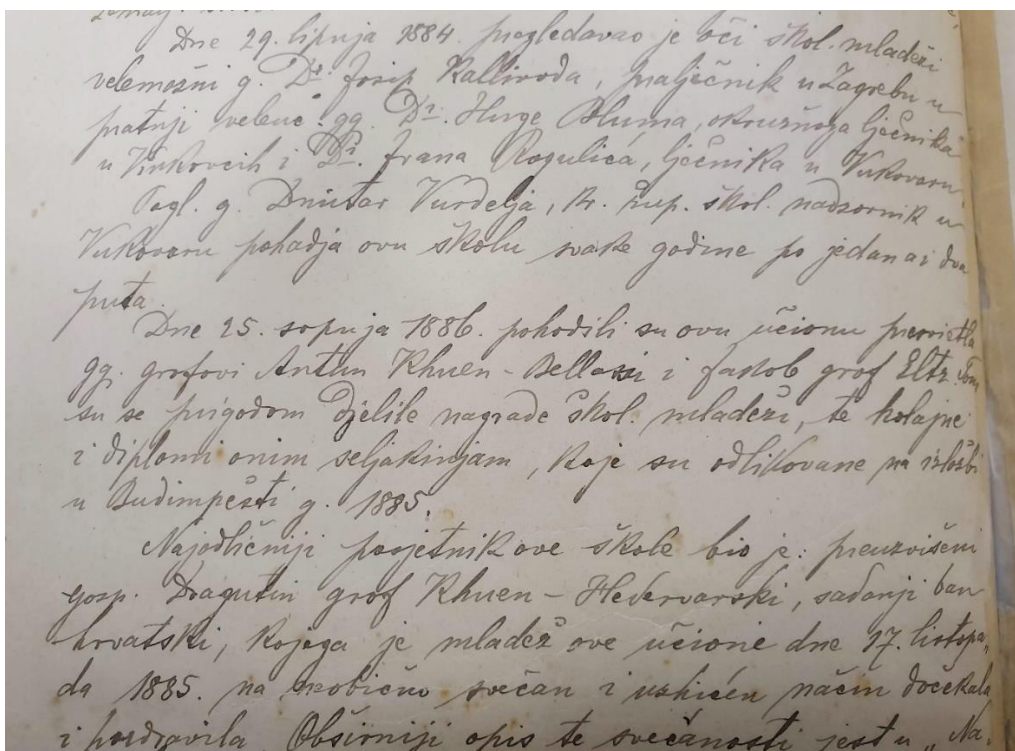 Dne 29. lipnja 1884. pregledavao je oči škol. mladeži
velemožni g. Dr. Josip Kallivoda, praljéčnik u Zagrebu u
pratnji veleuč. gg. Dr. Huge Bluma, okružnoga ljéčnika
u Vinkovcih i Dr. Frana Rogulića, ljéčnika u Vukovaru
Pogl. g. Dmitar Vurdelja, kr. žup. škol. nadzornik u
Vukovaru pohadja ovu školu svake godine po jedan a i dva
puta.
Dne 25. srpnja 1886. pohodili su ovu učionu presvietla
gg. grofovi Antun Khuen-Bellasi i Jakob grof Eltz.
su se prigodom djelile nagrade škol. mladeži, te kolajne
i diplomi onim seljakinjam, koje su odlikovane na izložbi
u Budimpešti g. 1885.
Najodličniji posjetnik ove škole bio je: preuzvišeni
gosp. Dragutin grof Khuen-Hedervarski, sadanji ban
hrvatski, kojega je mladež ove učione dne 17. listopa„
da 1885. na neobično svečan i ushićen način dočekala
i pozdravila Obširniji opis te svečanosti jest u „Na„